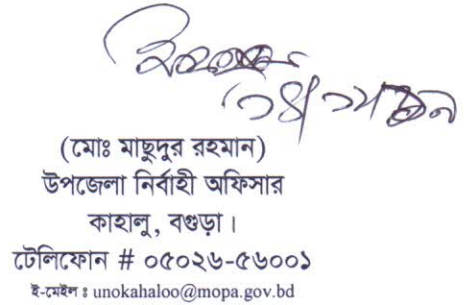 (মোঃ মাছুদুর রহমান)
উপজেলা নির্বাহী অফিসার
কাহালু, বগুড়া।
টেলিফোন # ০৫০২৬-৫৬০০১
ই-মেইল ঃ unokahaloo@mopa.gov.bd